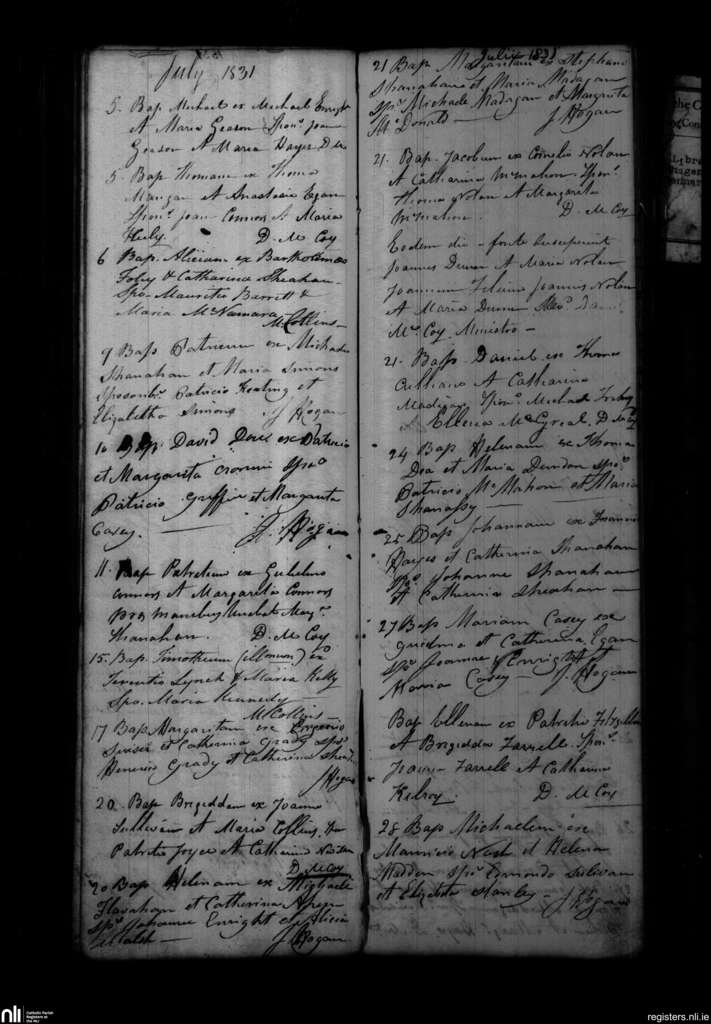 July 1831
5. Bap Michael ex Michael Enright
et Maria Geason Spon. Joan
Geason et Maria Hayes D
5. Bap Thomam ex Thoma
Mangan et Anastasia Egan
Spon. Joan Connors et Maria
Healy. D. McCoy
6 Bap. Aliciam ex Bartholomeo
Foley & Catharina Sheahan
Spo. Mauritio Barrett &
Maria McNamara
McCollins
9 Bap Patricium ex Michael
Shanahan et Maria Simons
Sponsorib. Patricio Keating et
Elizabetha Simons J Hogan
10 Bap. David ex Patricio
et Margarita Cronin Spo
Patricio Griffin et Margarita
Casey. J. Hogan
11. Bap Patricium ex Gulielmo
Connors et Margarita Connors
Shanahan. D. McCoy
15. Bap. Timotheum ex
Terentio Lynch & Maria Kelly
Spo. Maria Kennedy
McCollins
17 Bap Margaritam ex Eugenio
et Catherina Grady Spo
Grady et Catherina
J Hogan
20. Bap Brigeddam ex Joanne
Sullivan et Maria Collins.
Patritio Joyce et Catherina
D. McCoy
20 Bap Helenam ex Michaele
Flanahan et Catherina
Spo Johanne Enright et Alicia
Walsh J Hogan
Julii 1831
21 Bap Margaritam ex Stephano
Shanahan et Maria Madagan
Spo. Michaele Madagan et Margarita
McDonald J Hogan
21. Bap. Jacobum ex Cornelio Nolan
et Catharina McMahon. Spon.
Thoma Nolan et Margarita
McMahon. D. McCoy
Eodem die - fonte susceperunt
Joannes et Maria Nolan
Joannem Joannis Nolan
et Maria
McCoy Ministro
21. Bap. Daniel ex Thoma
Culliane et Catharina
Madigan Spon. Michael
et Ellena McGreal. D. McCoy
24 Bap Helenam ex Thoma
Dea et Maria Dundon Spo.
Patricio McMahon et Maria
Shanassy
25 Bap Johannam ex Joanne
Hayes et Catherina Shanahan
Spo Johanne Shanahan
et Catherina Sheahan
27 Bap Mariam Casey ex
et Catherina Egan
Spo Joanne Enright et
Maria Casey J. Hogan
Bap Ellenam ex Patritio Fitzgibbon
et Brigedda Farrell. Spon.
Joann Farrell et Catherina
Kelroy. D. McCoy
28 Bap Michaelem ex
Mauricio Nash et Helena
Madden Spo Edmondo Sulivan
et Elizabeth Stanley J Hogan
nli
Catholic Parish
Registers at
the NLI
registers.nli.ie